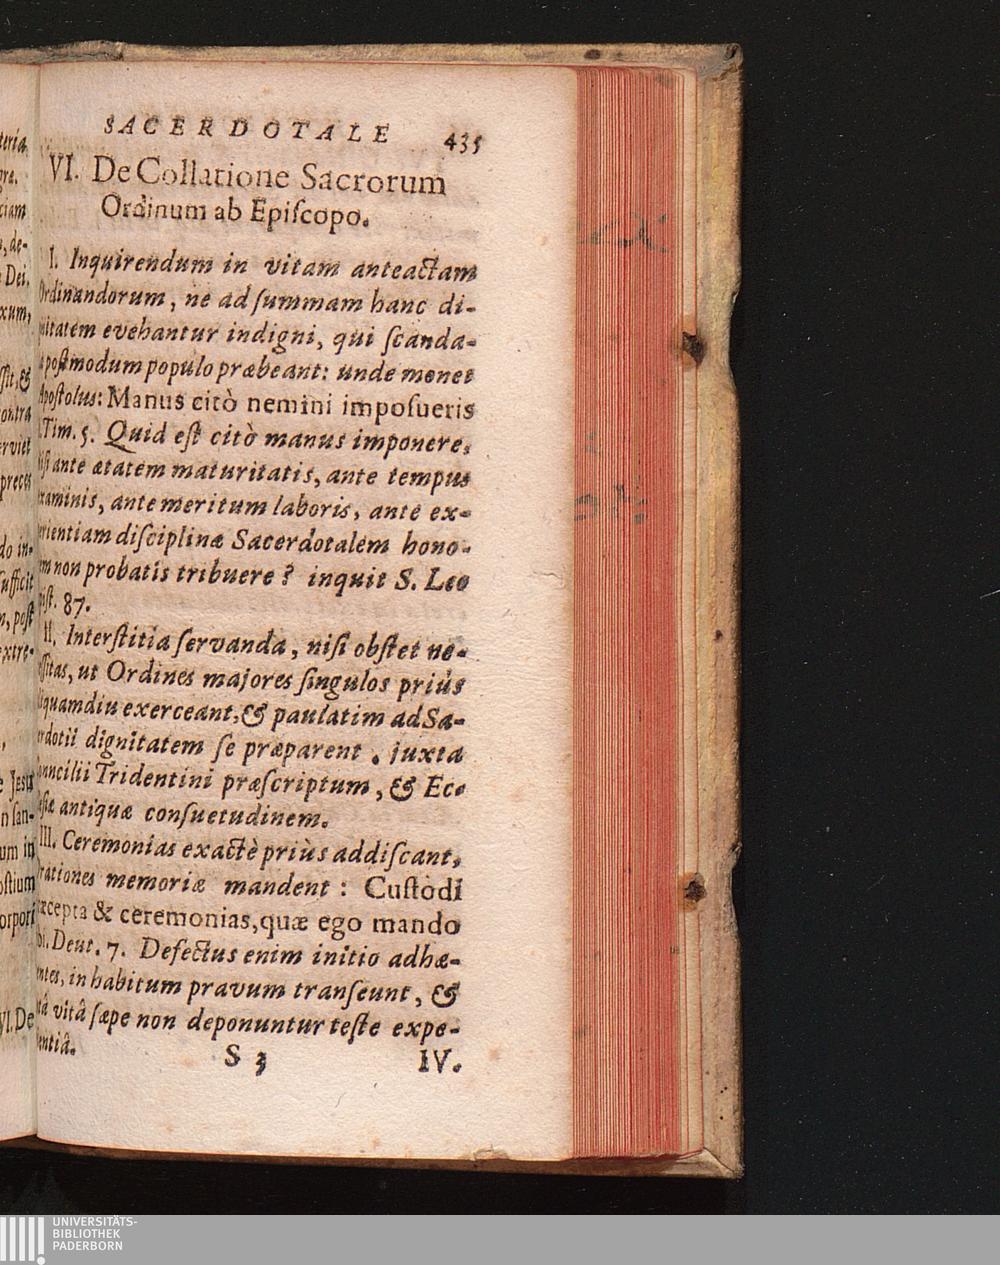 SACERDOTALE 435
VI. De Collatione Sacrorum
Ordinum ab Epiſcopo.
I. Inquirendum in vitam anteactam
Ordinandorum, ne ad ſummam hanc di-
nitatem evehantur indigni, qui ſcanda-
a poſtmodum populo præbeant: unde monet
Apoſtolus: Manus citò nemini impoſueris
. Tim. 5. Quid eſt citò manus imponere,
niſi ante ætatem maturitatis, ante tempus
xaminis, ante meritum laboris, ante ex-
erientiam diſciplinæ Sacerdotalem hono-
em non probatis tribuere? inquit S. Leo
piſt. 87.
II. Interſtitia ſervanda, niſi obſtet ne-
eſſitas, ut Ordines majores ſingulos priùs
liquamdiu exerceant, & paulatim ad Sa-
erdotii dignitatem ſe præparent. juxta
Concilii Tridentini præſcriptum, & Ec-
leſiæ antiquæ conſuetudinem.
III. Ceremonias exactè priùs addiſcant,
rationes memoriæ mandent: Cuſtodi
ræcepta & ceremonias, quæ ego mando
bi. Deut. 7. Defectus enim initio adhæ-
entes, in habitum pravum tranſeunt, &
tâ vitâ ſæpe non deponuntur teſte expe-
ientiâ.
S 3 IV.
teria
gre.
ciam
, de-
Dei.
xum,
ſit, &
contra
rviet
preces
do in-
ſufficit
n, poſt
extre-
,
e Jeſu
n ſan-
um in
oſtium
orpori
VI. De
UNIVERSITÄTS-
BIBLIOTHEK
PADERBORN